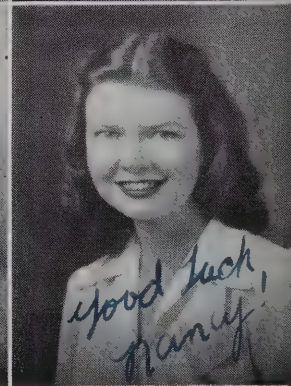 Good luck,
Nancy